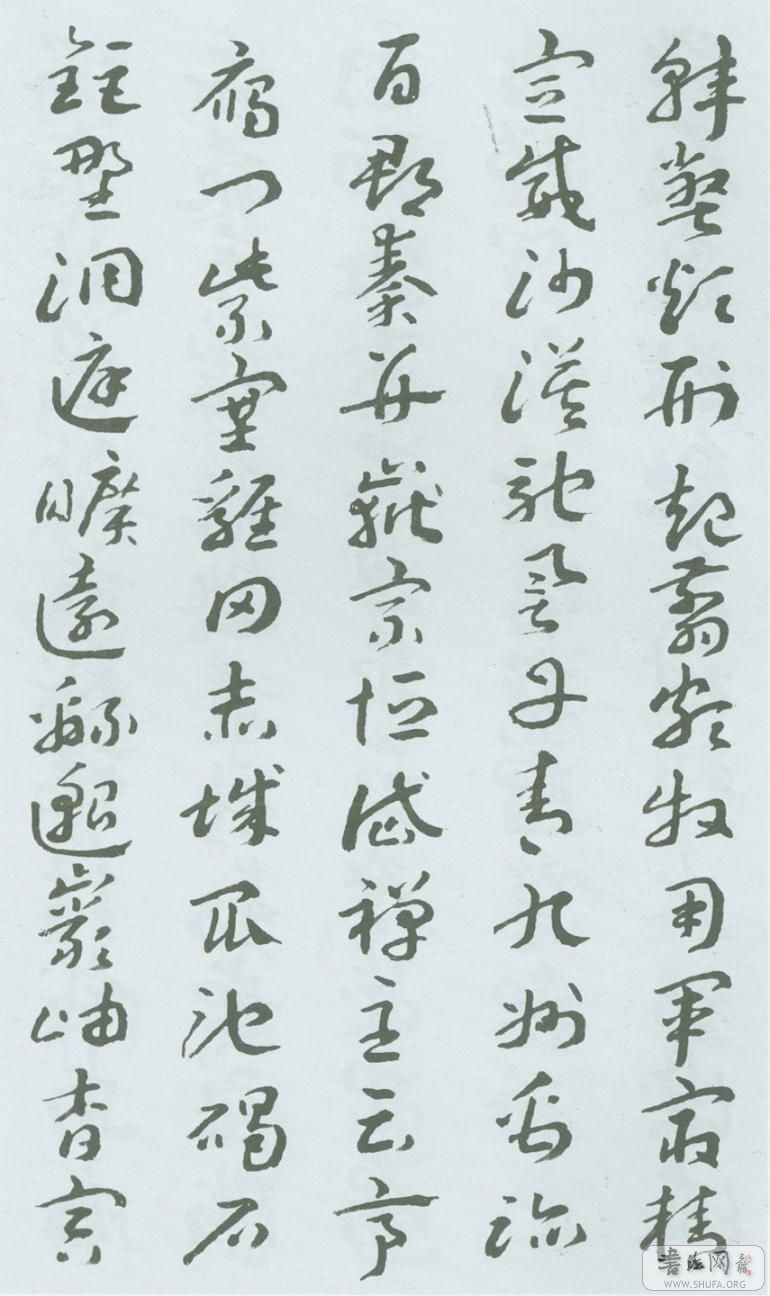 韓弊煩刑起翦頗牧用軍最精
宣威沙漠馳譽丹青九州禹跡
百郡秦并嶽宗恒岱禪主云亭
鴈門紫塞雞田赤城昆池碣石
鉅野洞庭曠遠緜邈巖岫杳冥
書法网
WWW.SHUFA.ORG